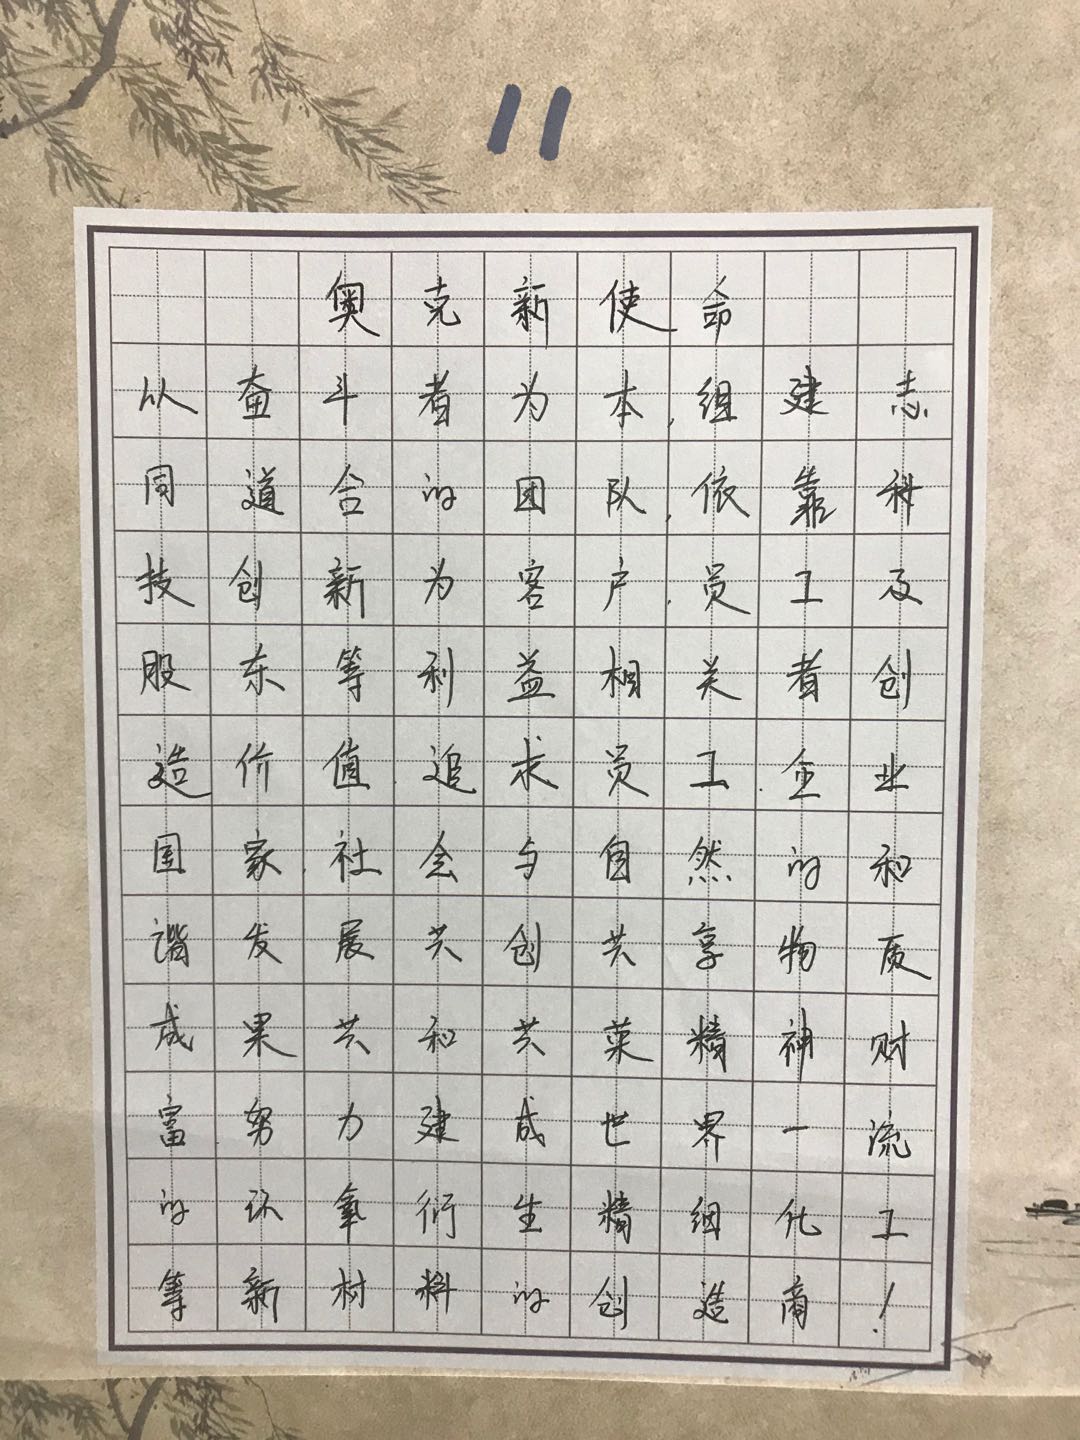 11
奥克新使命
以奋斗者为本,组建志
同道合的团队,依靠科
技创新为客户,员工及
股东等利益相关者创
造价值,追求员工,企业
国家,社会与自然的和
谐发展共创共享物质
成果共和共荣精神财
富努力建成世界一流
的环氧衍生精细化工
等新材料的创造商!